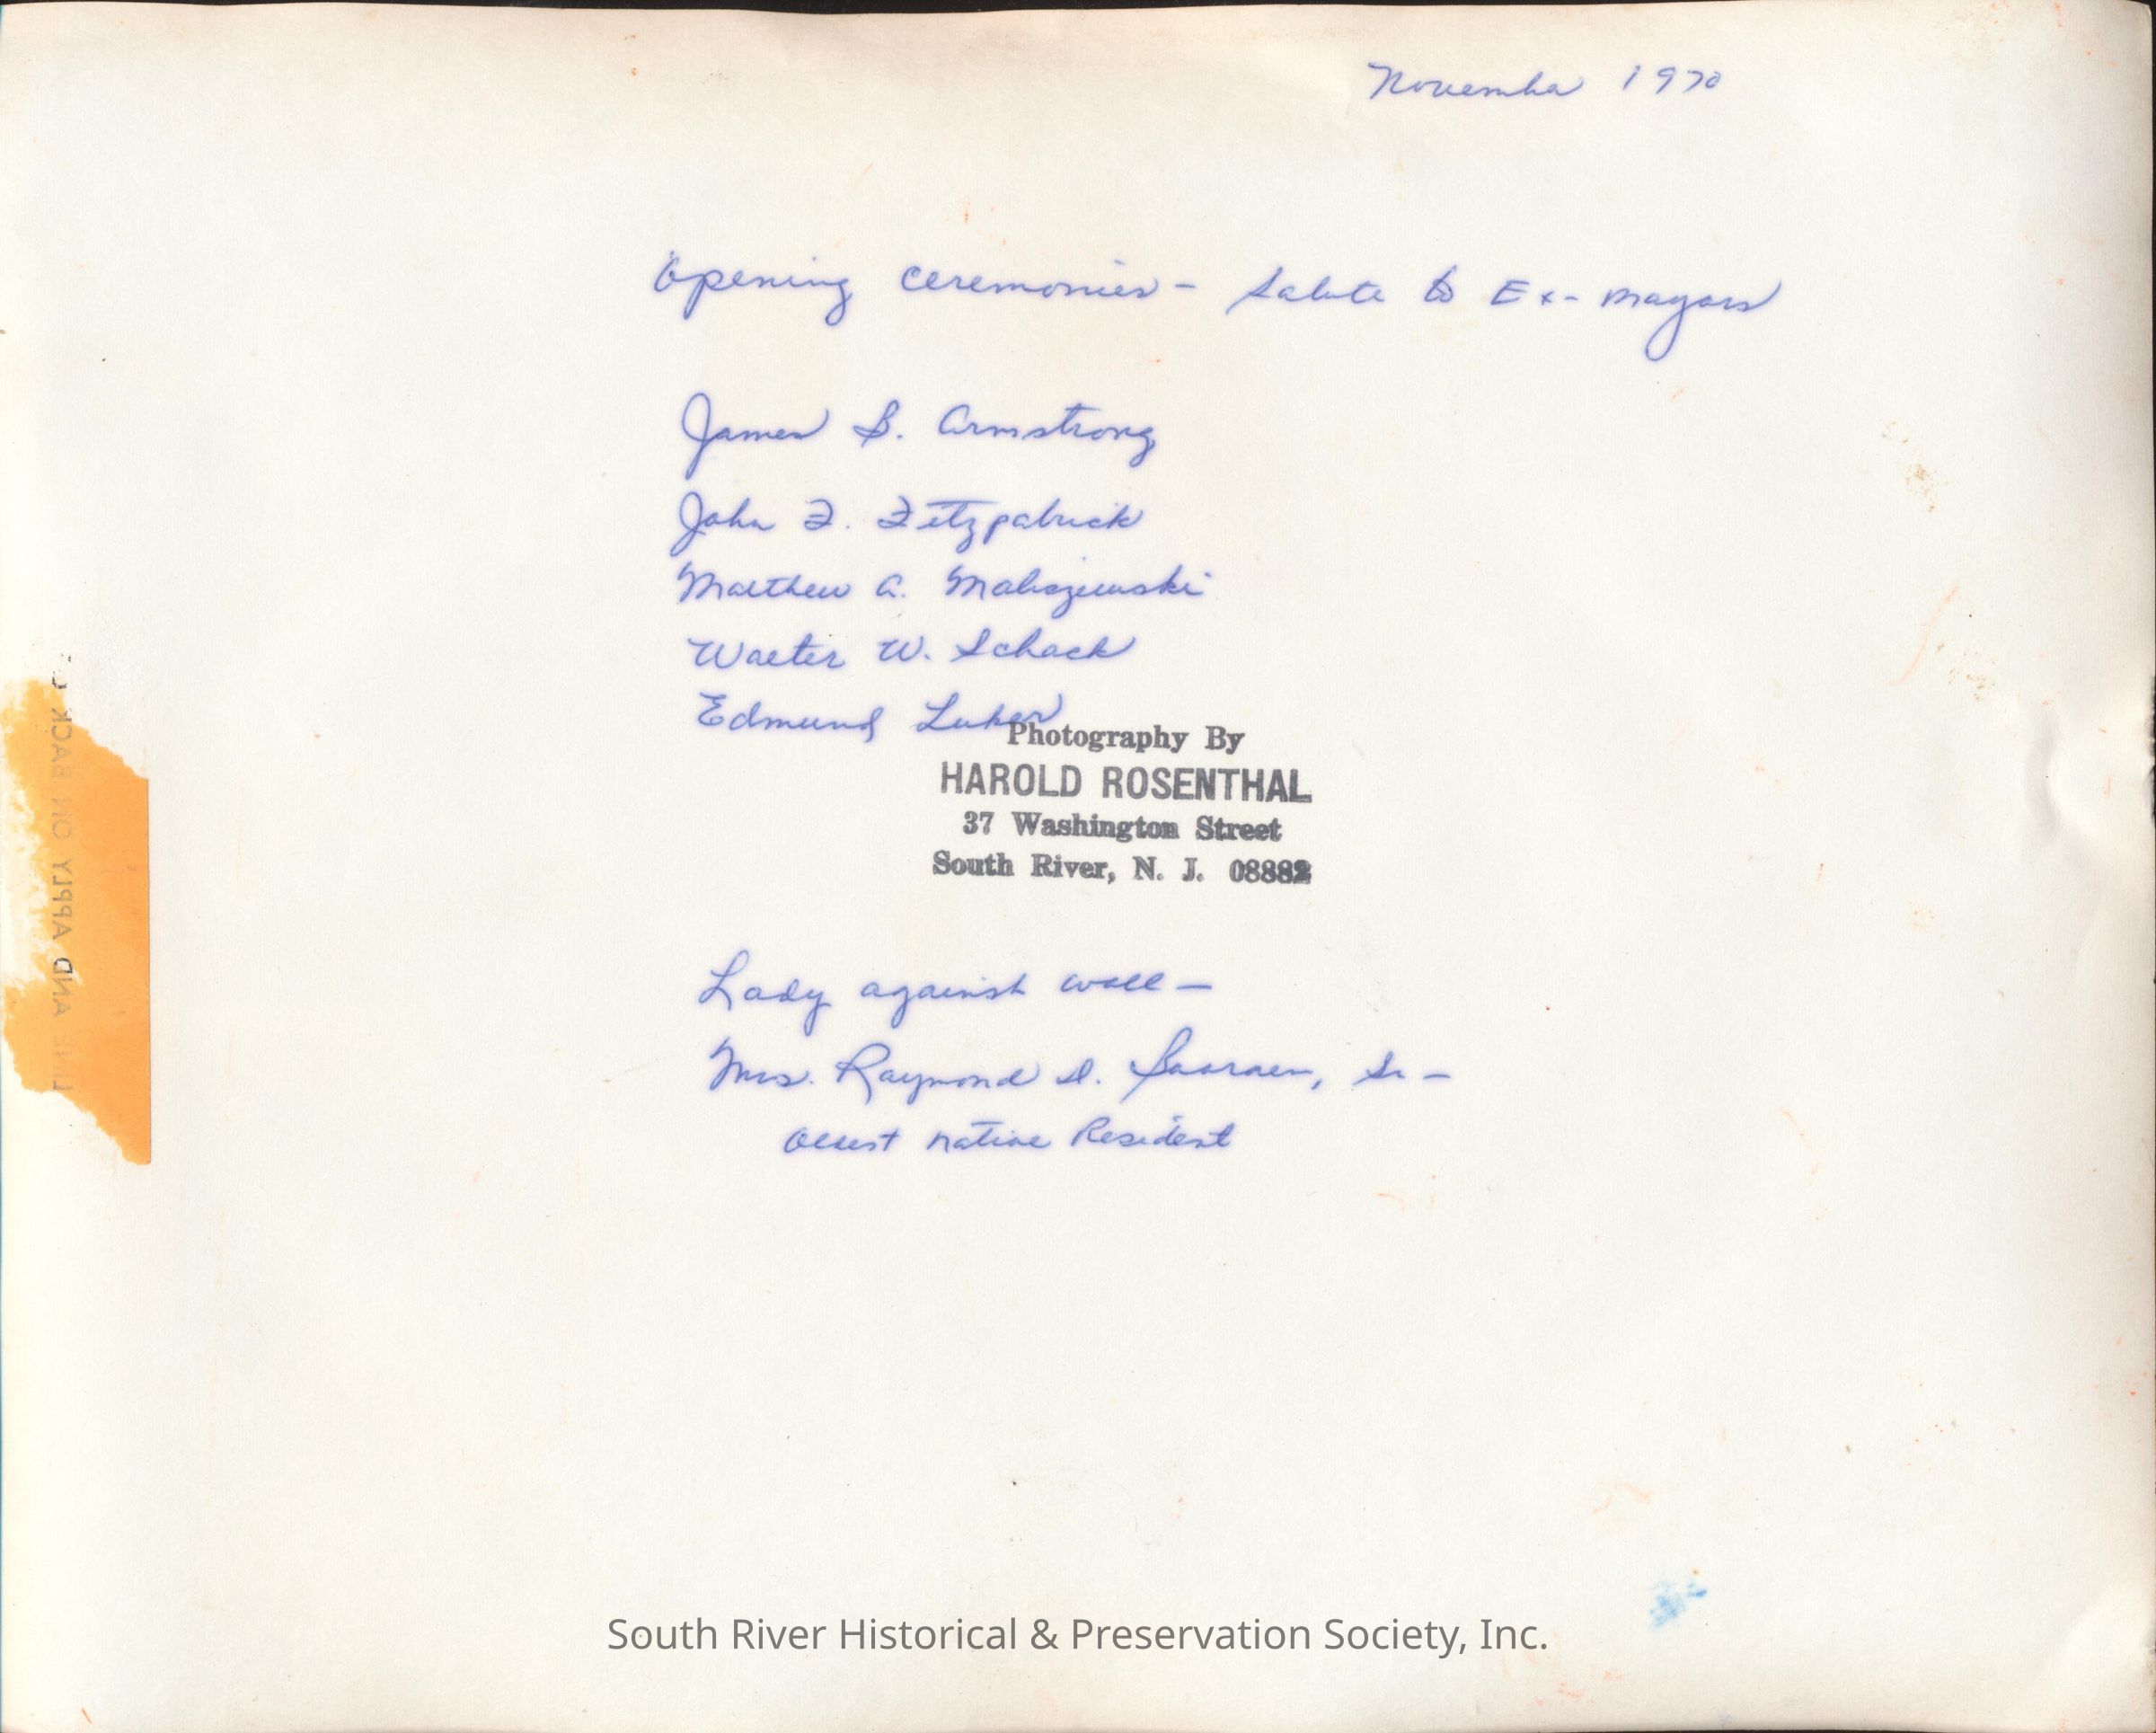 November 1970
Opening ceremonies - Salute to Ex-mayors
James B. Armstrong
John F. Fitzpatrick
Matthew A. Maliszewski
Walter W. Schack
Edmund Luker
Photography By
HAROLD ROSENTHAL
37 Washington Street
South River, N. J. 08882
Lady against wall -
Mrs. Raymond D. Sr -
Oldest native Resident
AND APPLY ON BACK
South River Historical & Preservation Society, Inc.